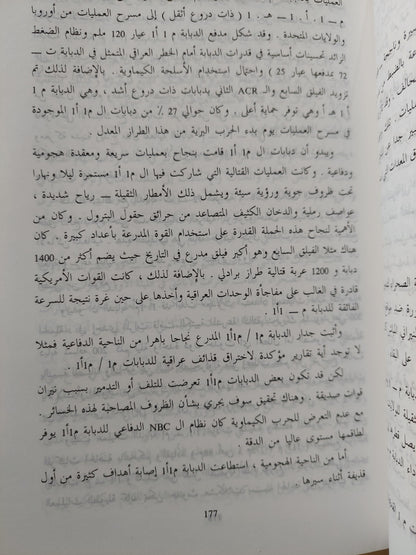 م ــ ١ . أ . ١ ــ هـ . ١ ( ذات دروع أثقل ) إلى مسرح العمليات من أوروبا
والولايات المتحدة . وقد شكل مدفع الدبابة م 1 أ1 عيار 120 ملم ونظام الضغط
الزائد تحسينات أساسية في قدرات الدبابة أمام الخطر العراقي المتمثل في الدبابة ت ــ
72 بمدفعها عيار 25 ) واحتمال استخدام الأسلحة الكيماوية . بالإضافة لذلك ، تم
تزويد الفيلق السابع والـ ACR الثاني بدبابات ذات دروع أشد ، وهي الدبابة م 1
أ 1 هـ أ وهي توفر حماية أعلى . وكان حوالي 27 ٪ من دبابات ال م1 أ1 الموجودة
في مسرح العمليات يوم بدء الحرب البرية من هذا الطراز المعدل .
ويبدو أن دبابات ال م1 أ1 قامت بنجاح بعمليات سريعة ومعقدة هجومية
ودفاعية . وكانت العمليات القتالية التي شاركت فيها ال م1 أ1 مستمرة ليلا ونهارا
تحت ظروف جوية ورؤية سيئة ويشمل ذلك الأمطار الثقيلة ــ رياح شديدة ،
عواصف رملية والدخان الكثيف المتصاعد من حرائق حقول البترول . وكان من
الأهمية لنجاح هذه الحملة القدرة على استخدام القوة المدرعة بأعداد كبيرة . كان
هناك مثلا الفيلق السابع وهو أكبر فيلق مدرع في التاريخ حيث يضم أكثر من 1400
دبابة و 1200 عربة قتالية طراز برادلي . بالإضافة لذلك ، كانت القوات الأمريكية
قادرة في الغالب على مفاجأة الوحدات العراقية وأخذها على حين غرة نتيجة للسرعة
الفائقة للدبابة م ــ 1أ1 .
وأثبت جدار الدبابة م1 / 1أ1 المدرع نجاحا باهرا من الناحية الدفاعية فمثلا
لا توجد أية تقارير مؤكدة لاختراق قذائف عراقية للدبابات م1 / 1أ1 .
لكن قد تكون بعض الدبابات م1أ1 تعرضت للتلف أو التدمير بسبب نيران
قوات صديقة . وهناك تحقيق سوف يجري بشأن الظروف المصاحبة لهذه الخسائر .
مع عدم التعرض للحرب الكيماوية كان نظام ال NBC الدفاعي للدبابة م1أ1 يوفر
لطاقمها مستوى عاليا من الدقة .
أما من الناحية الهجومية ، استطاعت الدبابة م1أ1 إصابة أهداف كثيرة من أول
قذيفة أثناء سيرها .
177